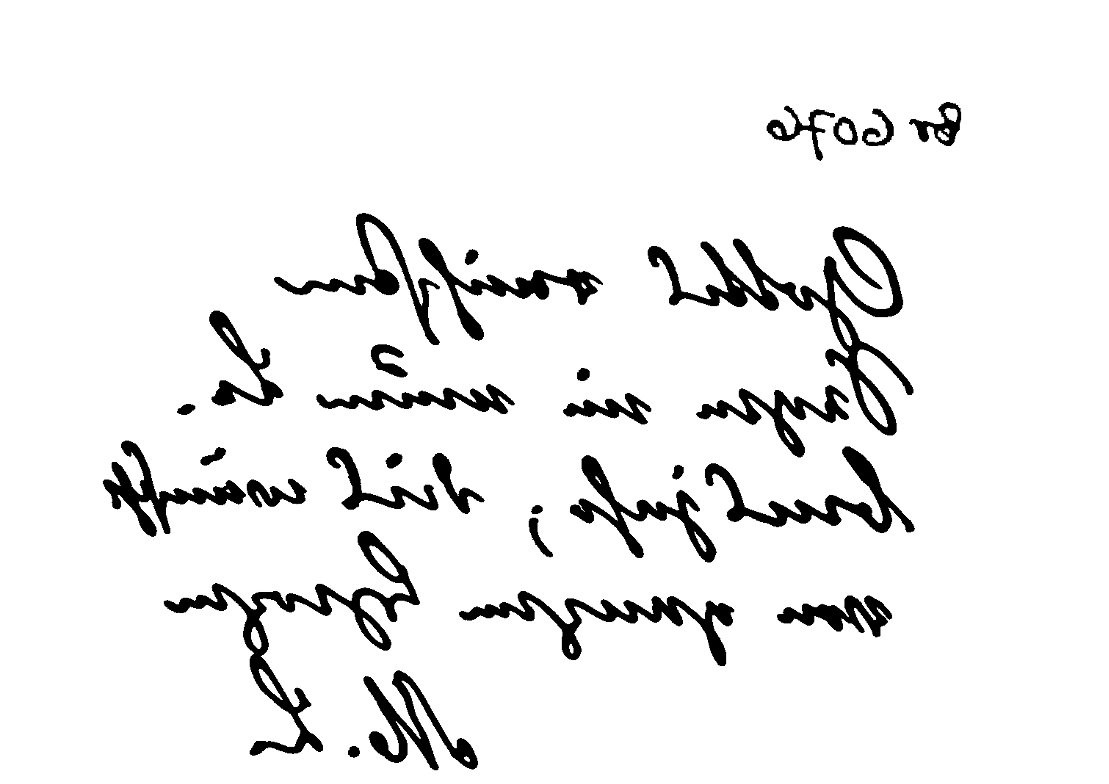 Br 6076
Gottes reichsten
Segen im neuen Le.
bensjahr; dies wünscht
von ganzem Herzen
M. L